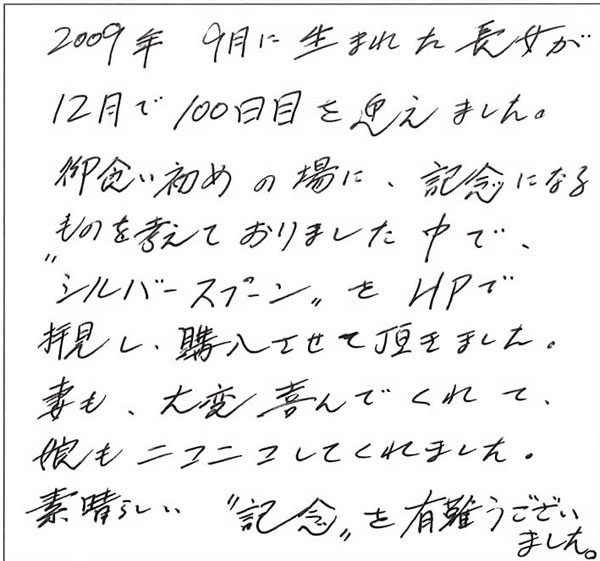 2009年 9月に生まれた長女が
12月で100日目を迎えました。
御食い初めの場に、記念になる
ものを考えておりました中で、
"シルバースプーン"をHPで
拝見し、購入させて頂きました。
妻も、大変喜んでくれて、
娘もニコニコしてくれました。
素晴らしい "記念"を有難うござい
ました。